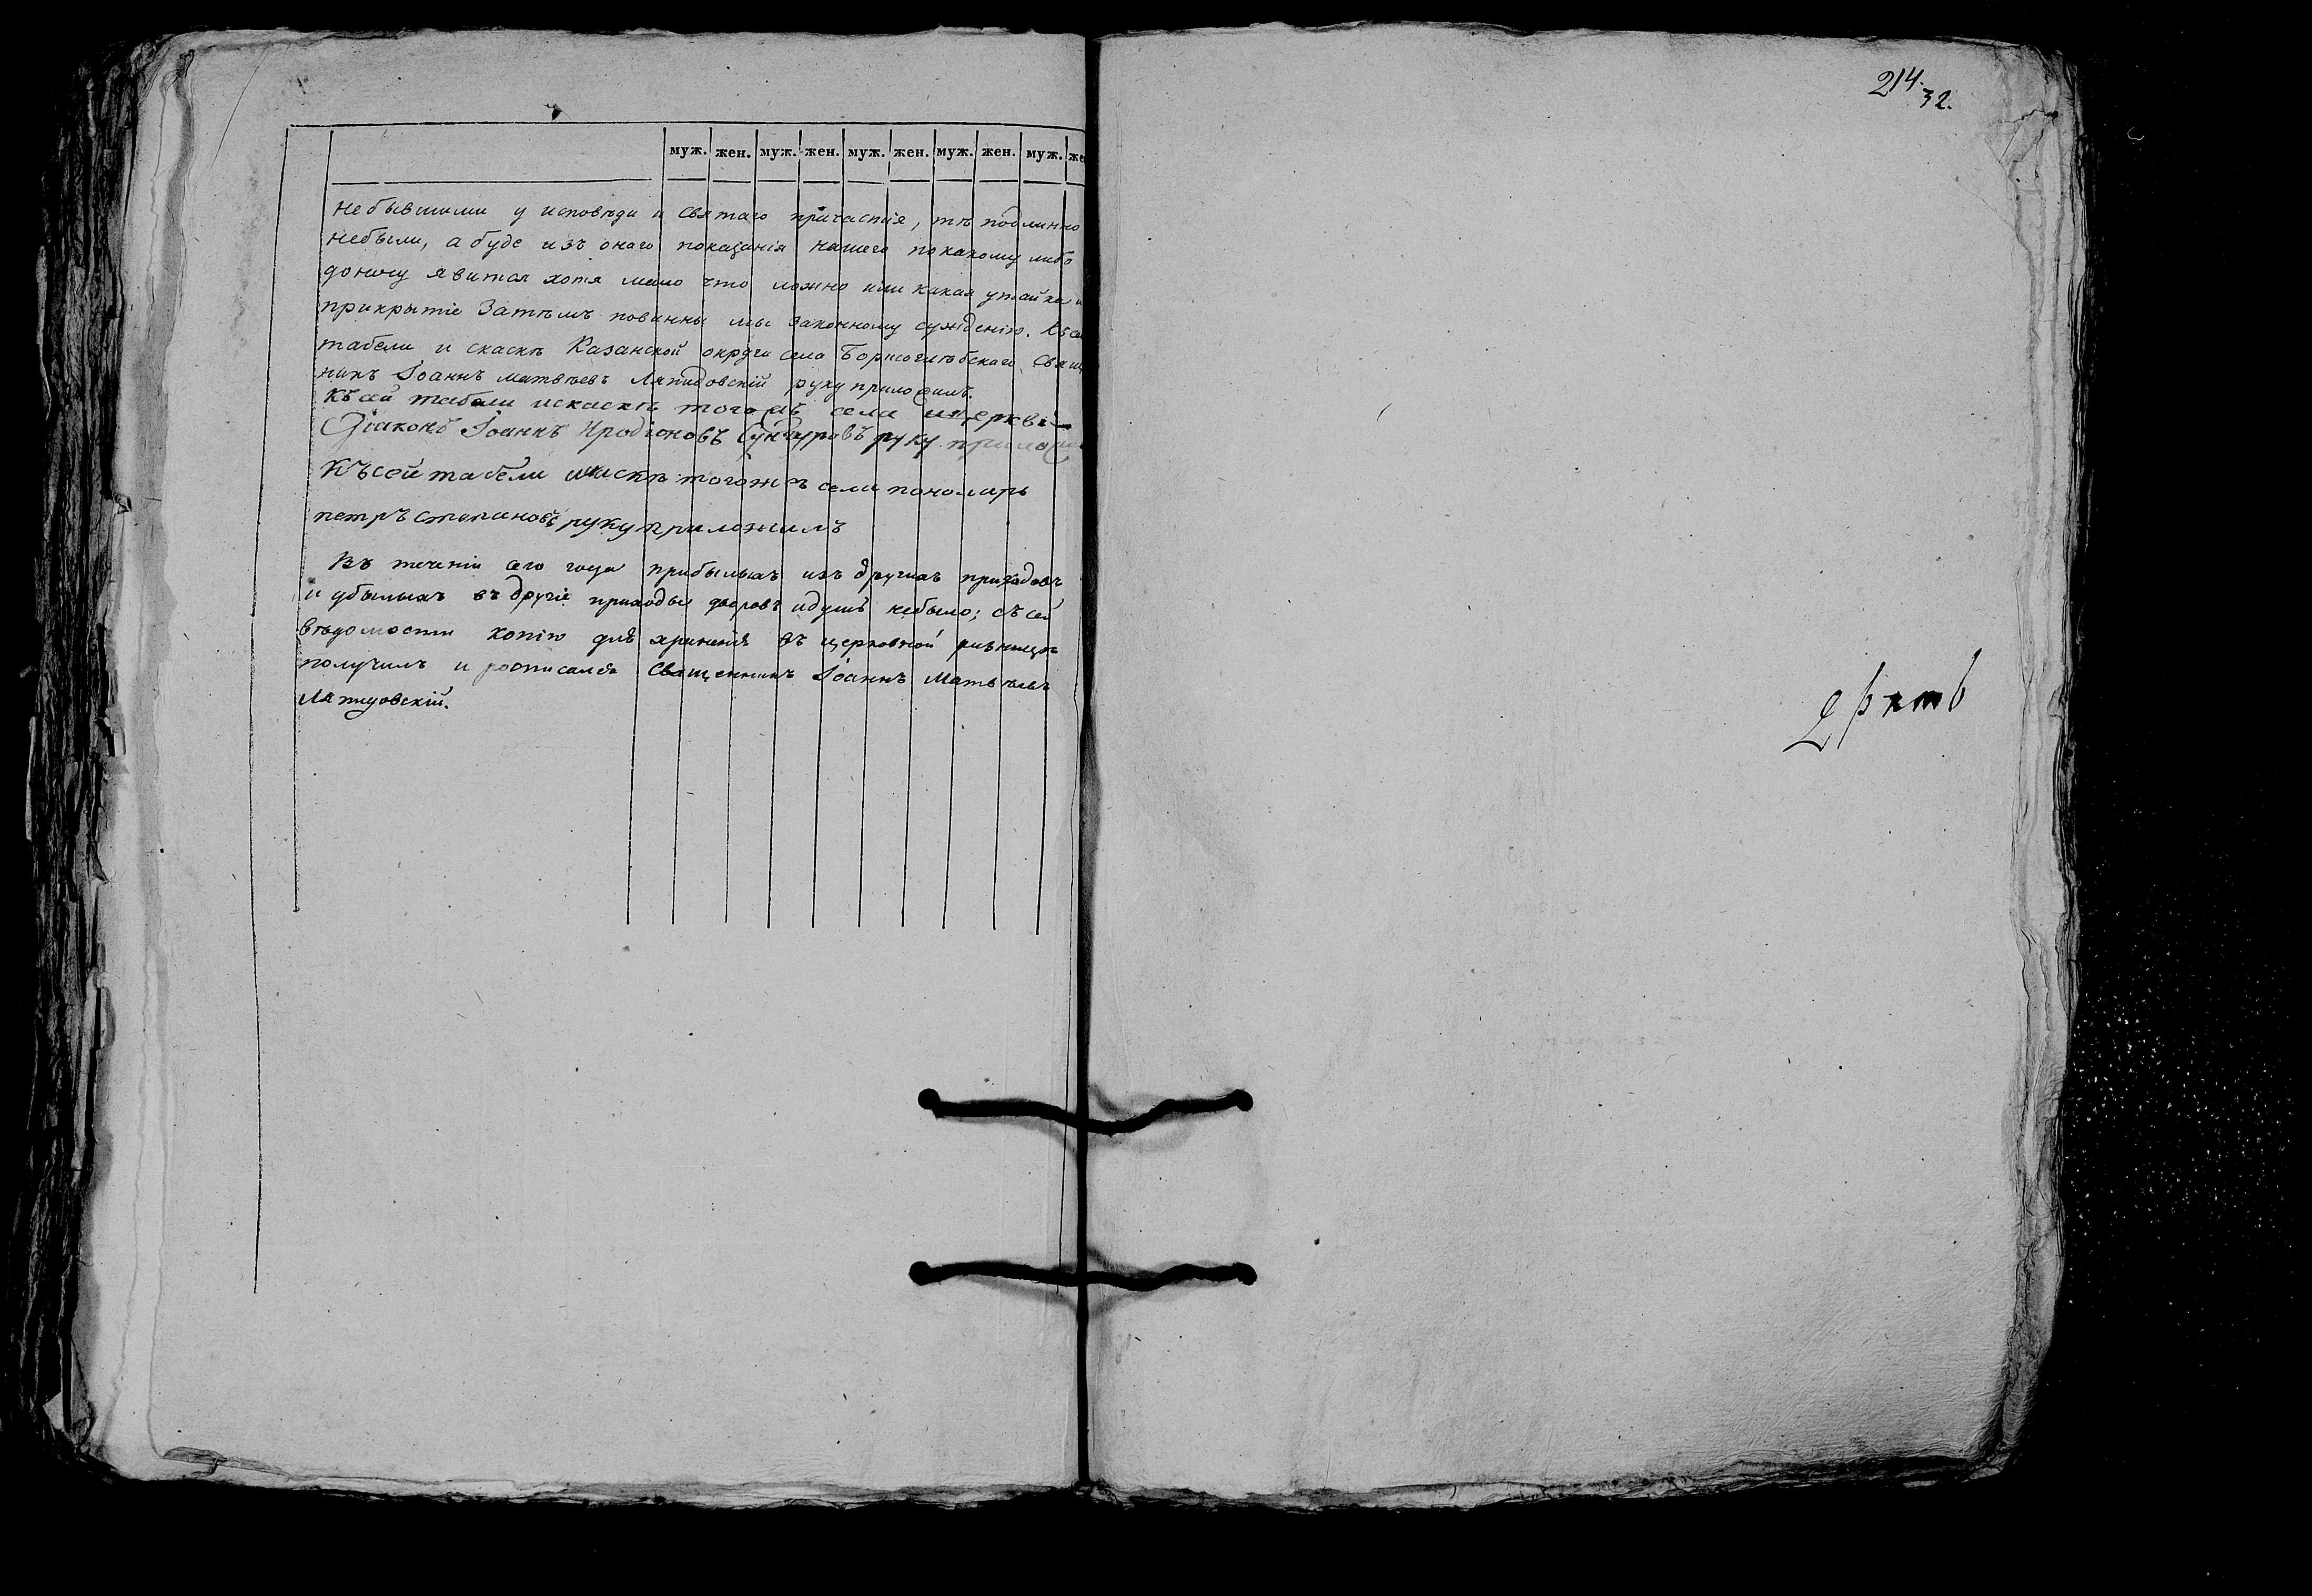 муж. жен. муж. жен. муж. жен. муж. жен. муж. же
небывшими у исповѣди и святаго причастія, тѣ подлинно
небыли, а буде изъ онаго показанія нашего покакому либо
доносу явится хотя мало что ложно или какая утайка и
прикрытіе Затѣмъ повинны мы законному сужденію. Къ се
табели и скаскѣ Казанской округи села Борисоглѣбскаго Свящ
никъ Іоаннъ матвѣевъ Ляпидовскій руку приложилъ.
Къ сей табели искаскѣ того жъ села церкви
Діаконъ Іоаннъ Иродіоновъ Сундуровъ руку приложи
Къ сей табели тогожъ села пономарь
петръ степановъ руку приложилъ
Въ теченіи сего года прибылыхъ изъ другихъ приходовъ
и убылыхъ въ другіе приходы дворовъ и душъ небыло; съ сей
вѣдомости копію для храненія въ церковной ризницѣ
получилъ и росписался Священникъ Іоаннъ Матвѣевъ
Ляпидовскій.
214.
32.